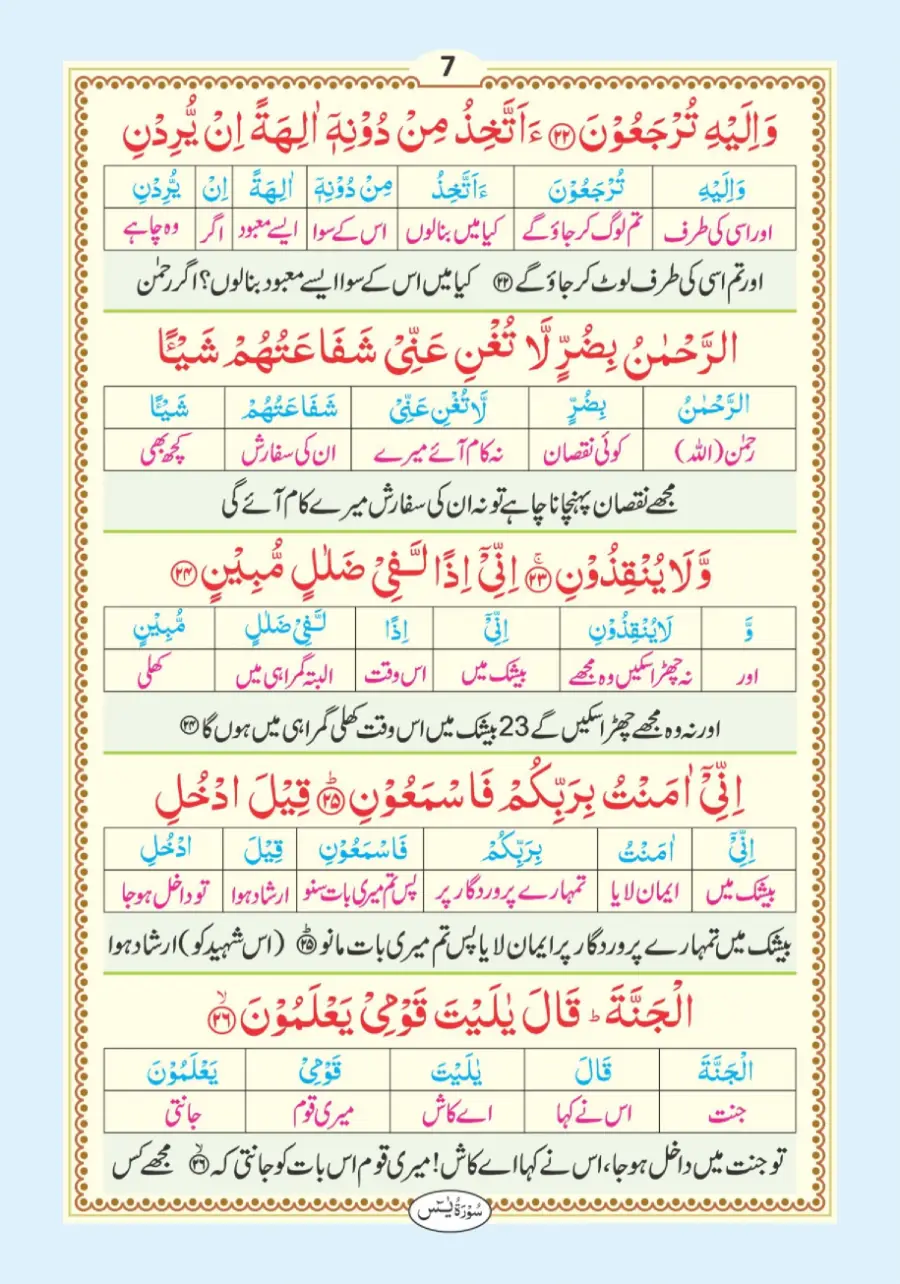 7
وَاِلَيْهِ تُرْجَعُوْنَ ﴿۲۲﴾ ءَاَتَّخِذُ مِنْ دُوْنِهٖۤ اٰلِهَةً اِنْ يُّرِدْنِ
وَاِلَيْهِ تُرْجَعُوْنَ ءَاَتَّخِذُ مِنْ دُوْنِهٖۤ اٰلِهَةً اِنْ يُّرِدْنِ
اور اسی کی طرف تم لوگ کر جاؤ گے کیا میں بنالوں اس کے سوا ایسے معبود اگر وہ چاہے
اور تم اسی کی طرف لوٹ کر جاؤ گے ﴿۲۲﴾ کیا میں اس کے سوا ایسے معبود بنالوں؟ اگر رحمٰن
الرَّحْمٰنُ بِضُرٍّ لَّا تُغْنِ عَنِّيْ شَفَاعَتُهُمْ شَيْـًٔا
الرَّحْمٰنُ بِضُرٍّ لَّا تُغْنِ عَنِّيْ شَفَاعَتُهُمْ شَيْـًٔا
رحمٰن (اللہ) کوئی نقصان نہ کام آئے میرے ان کی سفارش کچھ بھی
مجھے نقصان پہنچانا چاہے تو نہ ان کی سفارش میرے کام آئے گی
وَّلَا يُنْقِذُوْنِ ﴿۲۳﴾ۚ اِنِّيْۤ اِذًا لَّفِيْ ضَلٰلٍ مُّبِيْنٍ ﴿۲۴﴾
وَّ لَا يُنْقِذُوْنِ اِنِّيْۤ اِذًا لَّفِيْ ضَلٰلٍ مُّبِيْنٍ
اور نہ چھڑا سکیں وہ مجھے بیشک میں اس وقت البتہ گمراہی میں کھلی
اور نہ وہ مجھے چھڑا سکیں گے 23 بیشک میں اس وقت کھلی گمراہی میں ہوں گا ﴿۲۴﴾
اِنِّيْۤ اٰمَنْتُ بِرَبِّكُمْ فَاسْمَعُوْنِ ﴿۲۵﴾ؕ قِيْلَ ادْخُلِ
اِنِّيْۤ اٰمَنْتُ بِرَبِّكُمْ فَاسْمَعُوْنِ قِيْلَ ادْخُلِ
بیشک میں ایمان لایا تمہارے پروردگار پر پس تم میری بات سنو ارشاد ہوا تو داخل ہوجا
بیشک میں تمہارے پروردگار پر ایمان لایا پس تم میری بات مانو ﴿۲۵﴾ؕ (اس شہید کو) ارشاد ہوا
الْجَنَّةَ ؕ قَالَ يٰلَيْتَ قَوْمِيْ يَعْلَمُوْنَ ﴿۲۶﴾ۙ
الْجَنَّةَ قَالَ يٰلَيْتَ قَوْمِيْ يَعْلَمُوْنَ
جنت اس نے کہا اے کاش میری قوم جانتی
تو جنت میں داخل ہوجا، اس نے کہا اے کاش! میری قوم اس بات کو جانتی کہ ﴿۲۶﴾ۙ مجھے کس
سُوْرَةُ يٰسٓ